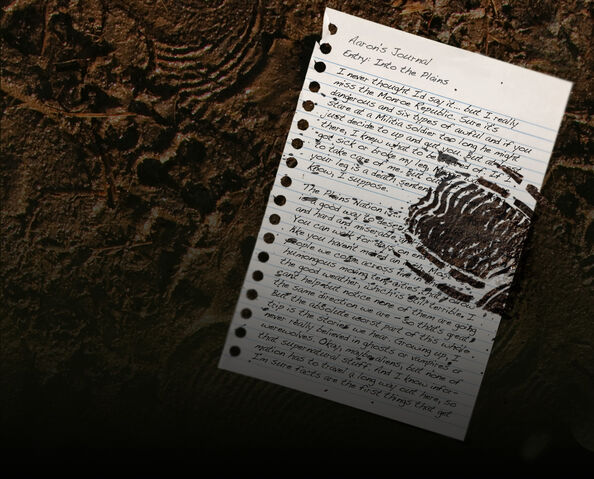 Aaron's Journal
Entry: Into the Plains
I never thought I'd say it... but I really
miss the Monroe Republic. Sure it's
dangerous and six types of awful and if you
stare at a Militia soldier too long he might
just decide to up and gut you. But at
there, I knew what to be If I
got sick or broke my leg,
to take care of me. But out
your leg is a death sentence
know, I suppose.
The Plains Nation is
a good way to describe
and hard and miserable,
You can walk for days on end
like you haven't moved an
people we come across are in
humongous moving tent-cities that
the good weather, which is terrible, I
can't help but notice none of them are going
the same direction we are - so that's great.
But the absolute worst part of this whole
trip is the stories we hear. Growing up, I
never really believed in ghosts or vampires or
werewolves. Okay, maybe aliens, but none of
that supernatural stuff. And I know infor-
mation has to travel a long way out here, so
I'm sure facts are the first things that get